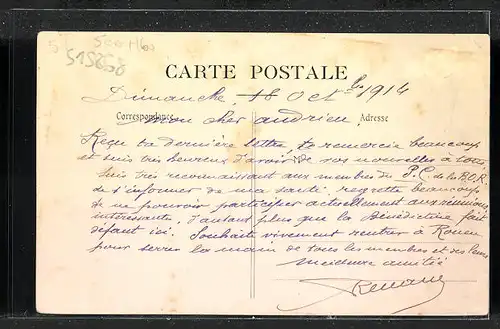 500 H60
515858
CARTE POSTALE
Dimanche 18 Octbre 1914
Correspondance Adresse
Mon cher Landrieu,
Reçu ta dernière lettre, te remercie beaucoup
et suis très heureux d'avoir de vos nouvelles à tous
suis très reconnaissant aux membres du P.C. de la
de s'informer de ma santé. regrette beaucoup
de ne pouvoir participer actuellement aux réunions
intéressantes, d'autant plus que la Bénédictine fait
défaut ici. Souhaite vivement rentrer à Rouen
pour serrer la main de tous les membres et des leurs
Meilleure amitié